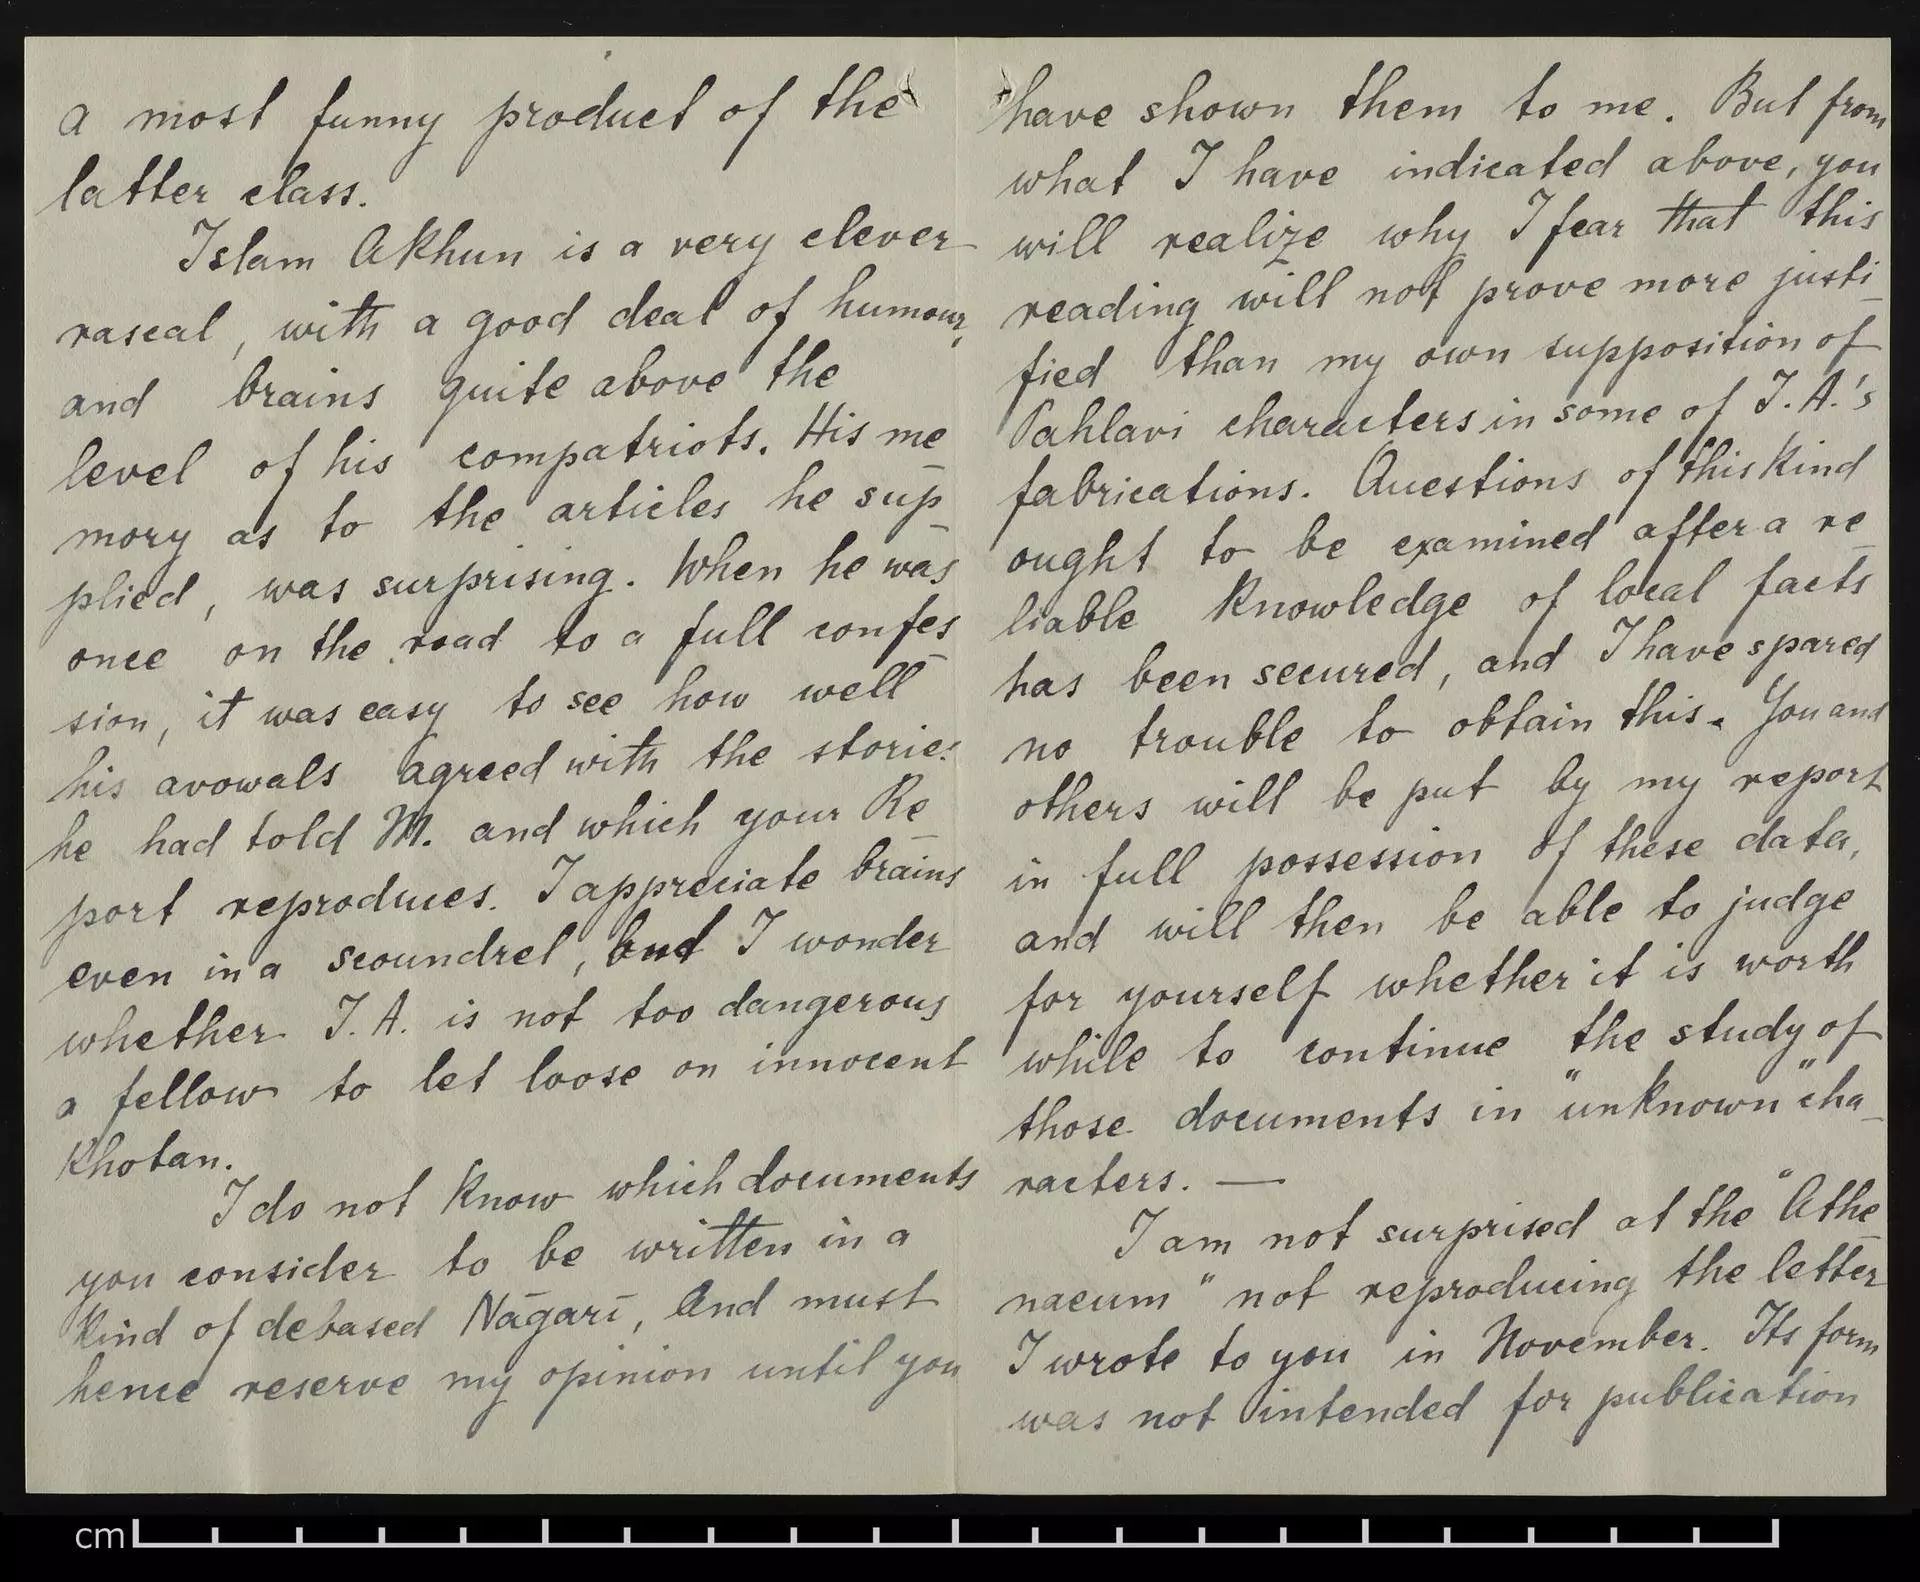 a most funny product of the
latter class.
Islam Akhun is a very clever
rascal, with a good deal of humour,
and brains quite above the
level of his compatriots. His me
mory as to the articles he sup
plied, was surprising. When he was
once on the road to a full confes
sion, it was easy to see how well
his avowals agreed with the stories
he had told M. and which your Re
port reproduces. I appreciate brains
even in a scoundrel, but I wonder
whether I. A. is not too dangerous
a fellow to let loose on innocent
Khotan.
I do not know which documents
you consider to be written in a
kind of debased Nāgarī, and must
hence reserve my opinion until you
have shown them to me. But from
what I have indicated above, you
will realize why I fear that this
reading will not prove more justi
fied than my own supposition of
Pahlavi characters in some of I. A.'s
fabrications. Questions of this kind
ought to be examined after a re
liable knowledge of local facts
has been secured, and I have spared
no trouble to obtain this. You and
others will be put by my report
in full possession of these data,
and will then be able to judge
for yourself whether it is worth
while to continue the study of
those documents in "unknown" cha
racters. —
I am not surprised at the "Athe
naeum" not reproducing the letter
I wrote to you in November. Its form
was not intended for publication
cm